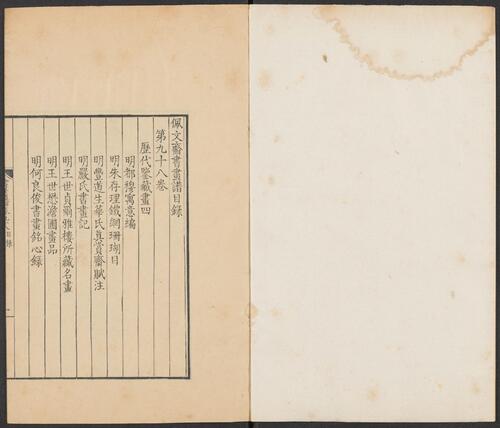 佩文齋書畫譜目錄
第九十八卷
歷代鑒藏畫四
明都穆寓意編
明朱存理鐵網珊瑚目
明豐道生華氏真賞齋賦注
明嚴氏書畫記
明王世貞爾雅樓所藏名畫
明王世懋澹圃畫品
明何良俊書畫銘心錄